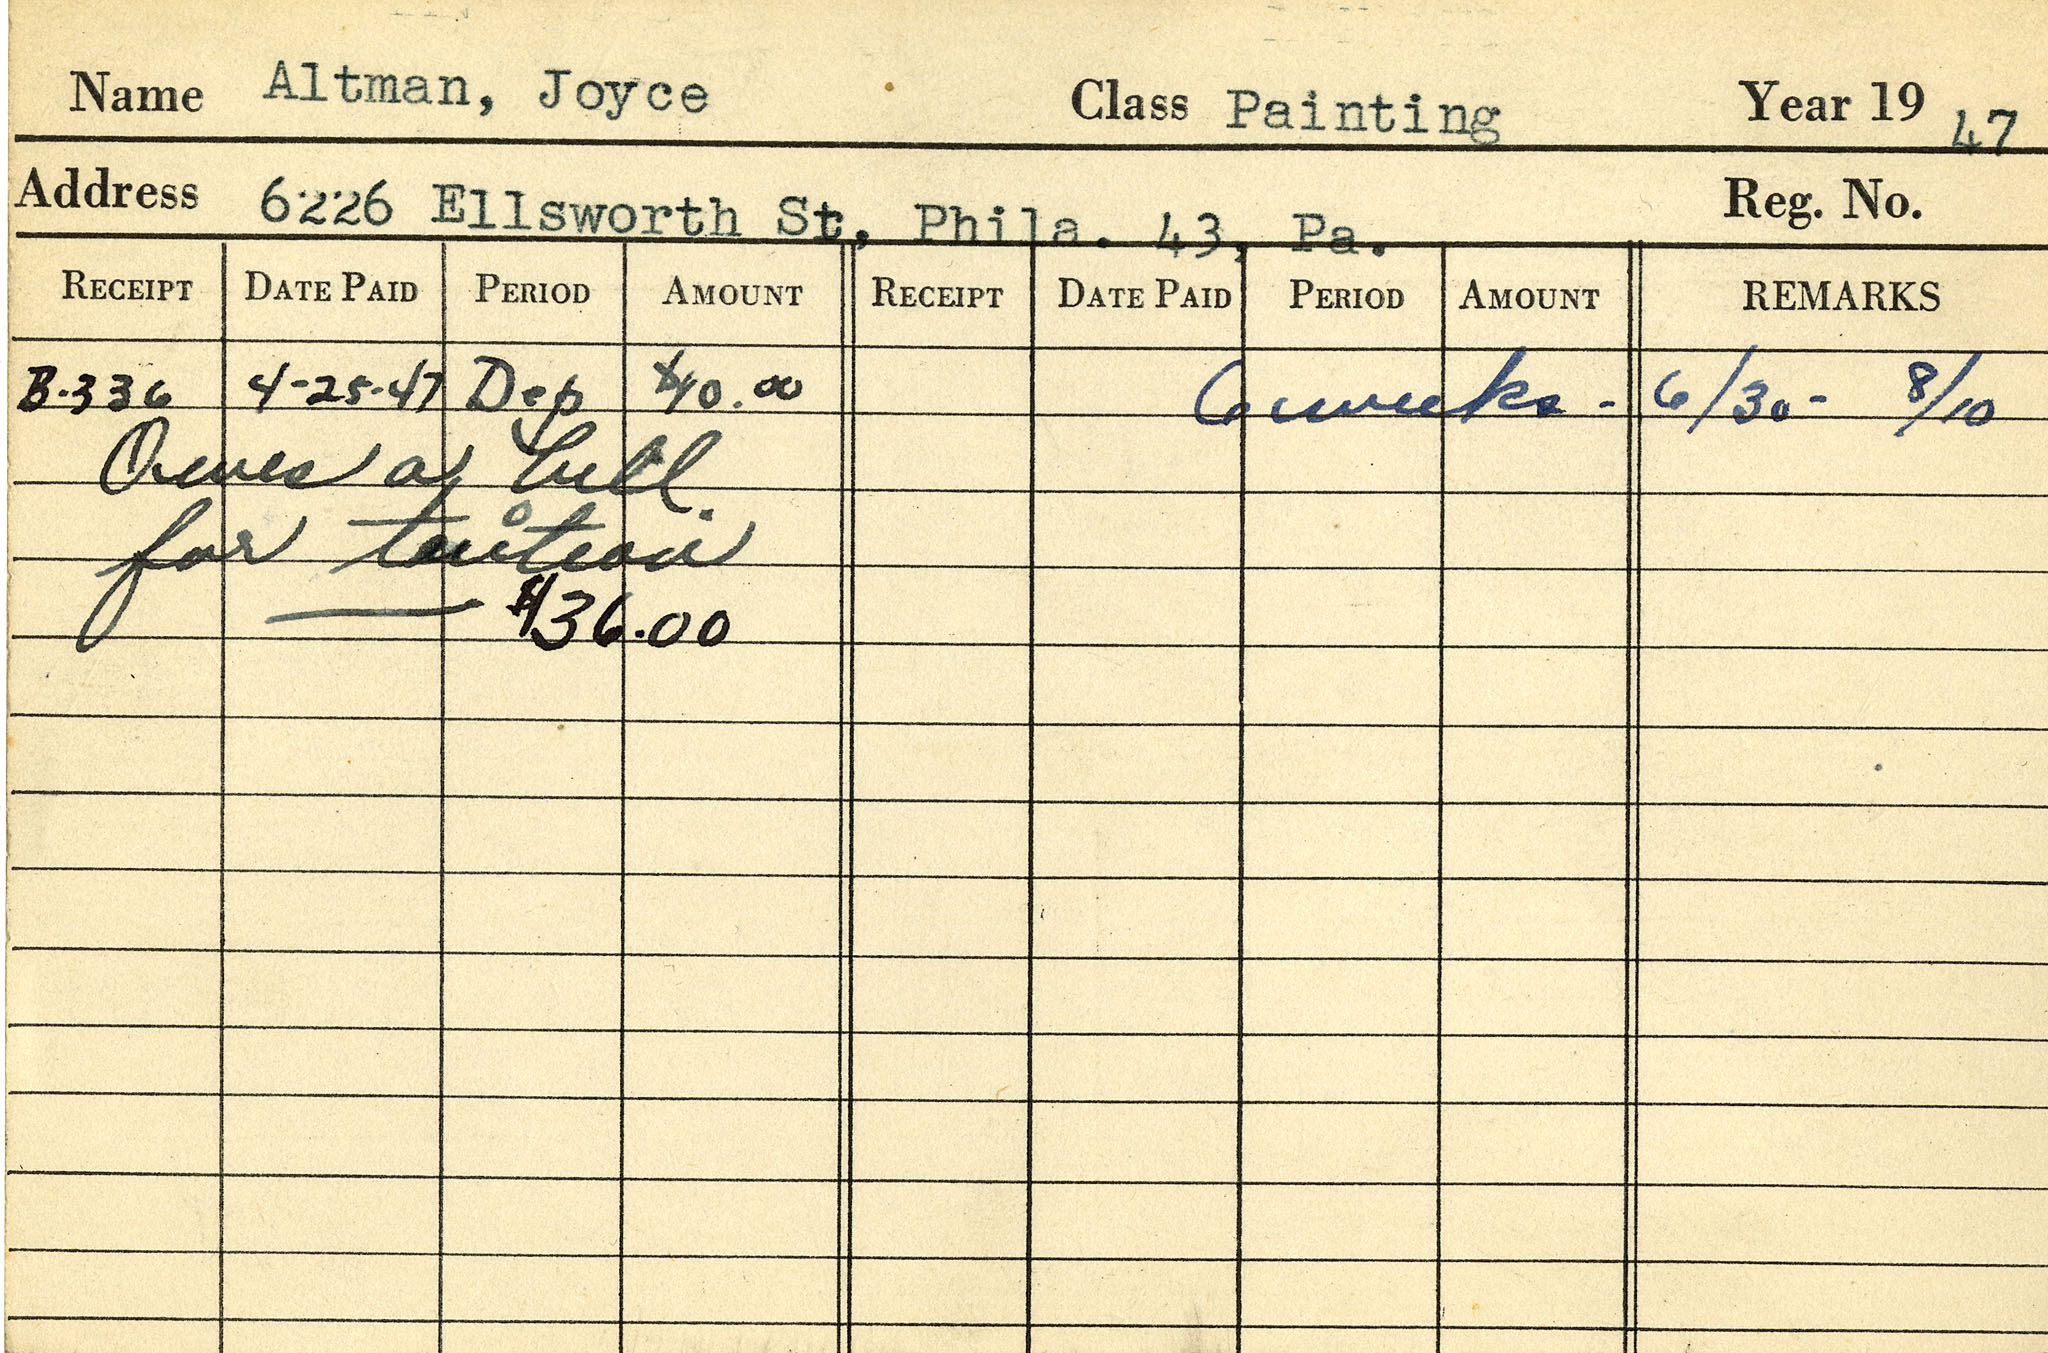 Name Altman, Joyce Class Painting Year 19 47
Address 6226 Ellsworth St, Phila. 43, Pa. Reg. No.
RECEIPT DATE PAID PERIOD AMOUNT RECEIPT DATE PAID PERIOD AMOUNT REMARKS
B-336 4-25-47 Dep $40.00 6 weeks - 6/30 - 8/10
Owes a bill
for tuition
$36.00